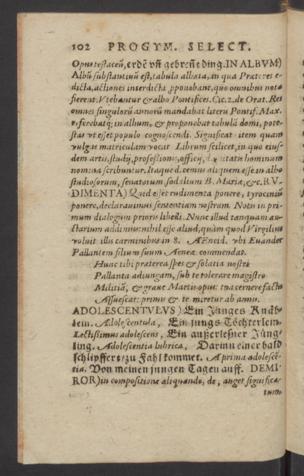 102 PROGYM. SELECT.
Opus testaceũ, erdẽ vñ gebreñe ding. IN ALBVM)
Albũ substantiuũ est, tabula albata, in qua Prætores e-
dicta, actiones interdicta ꝓponebant, quo omnibus nota
fierent. Vtebantur & albo Pontifices. Cic. 2. de Orat. Res
omnes singulorũ annorũ mandabat literis Pontif. Max.
referebatq; in album, & proponebat tabulã domi, pote-
stas vt esset populo cognoscendi. Significat item quam
vulgus matriculam vocat. Librum scilicet, in quo eius-
dem artis, studij, professionis, officij, & ætatis hominum
nomina scribuntur. Itaque dicemus aliquem esse in albo
studiosorum, senatorum sodalium B. Mariæ, &c. RV-
DIMENTA) Quid esset rudimenta ponere, tyrocinium
ponere, declarauimus sententiam nostram. Notis in pri-
mum dialogum prioris libelli. Nunc illud tanquam au-
ctarium addimus: nihil esse aliud, quàm quod Virgilius
voluit illis carminibus in 8. AEneid. vbi Euander
Pallantem filium suum AEneæ commendat.
Hunc tibi præterea spes & solatia nostri
Pallanta adiungam, sub te tolerare magistro
Militiã, & graue Martis opus: tua cernere facta
Assuescat: primis & te miretur ab annis.
ADOLESCENTVLVS) Ein Junges Knäb-
lein. Adolescentula, Ein jungs Töchterlein.
Lectissimus adolescens, Ein außerleßner Jüng-
ling. Adolescentia lubrica, Darinn einer bald
schlipffert, zu Fahl kommet. A prima adolescẽ-
tia. Von meinen jungen Tagen auff. DEMI-
ROR) in compositione aliquando, de, auget significa-
tum